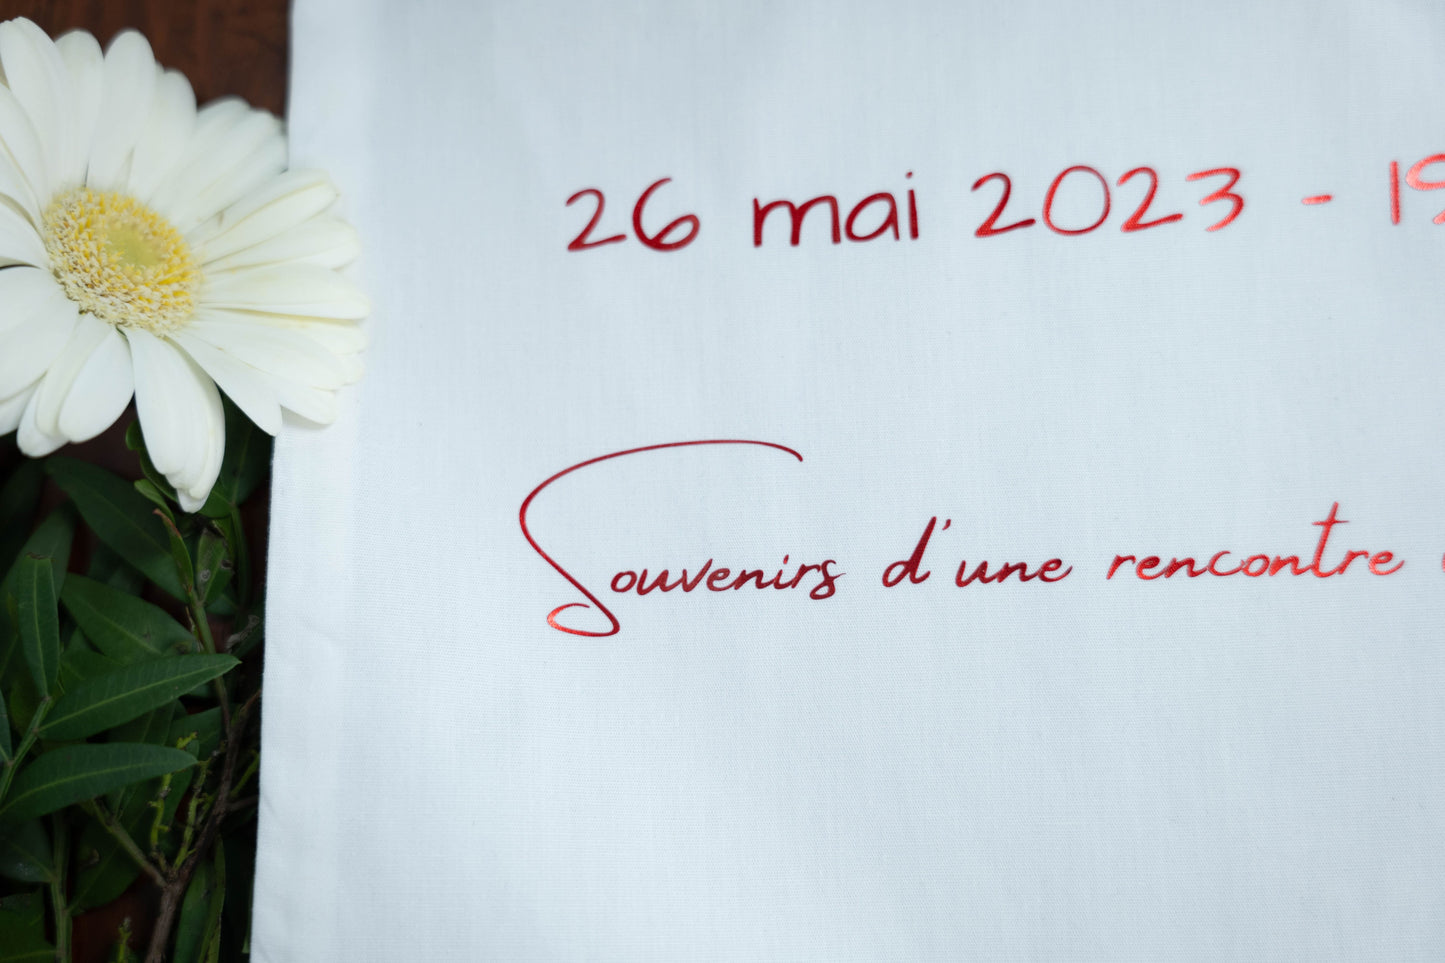 26 mai 2023 -
Souvenirs d'une rencontre